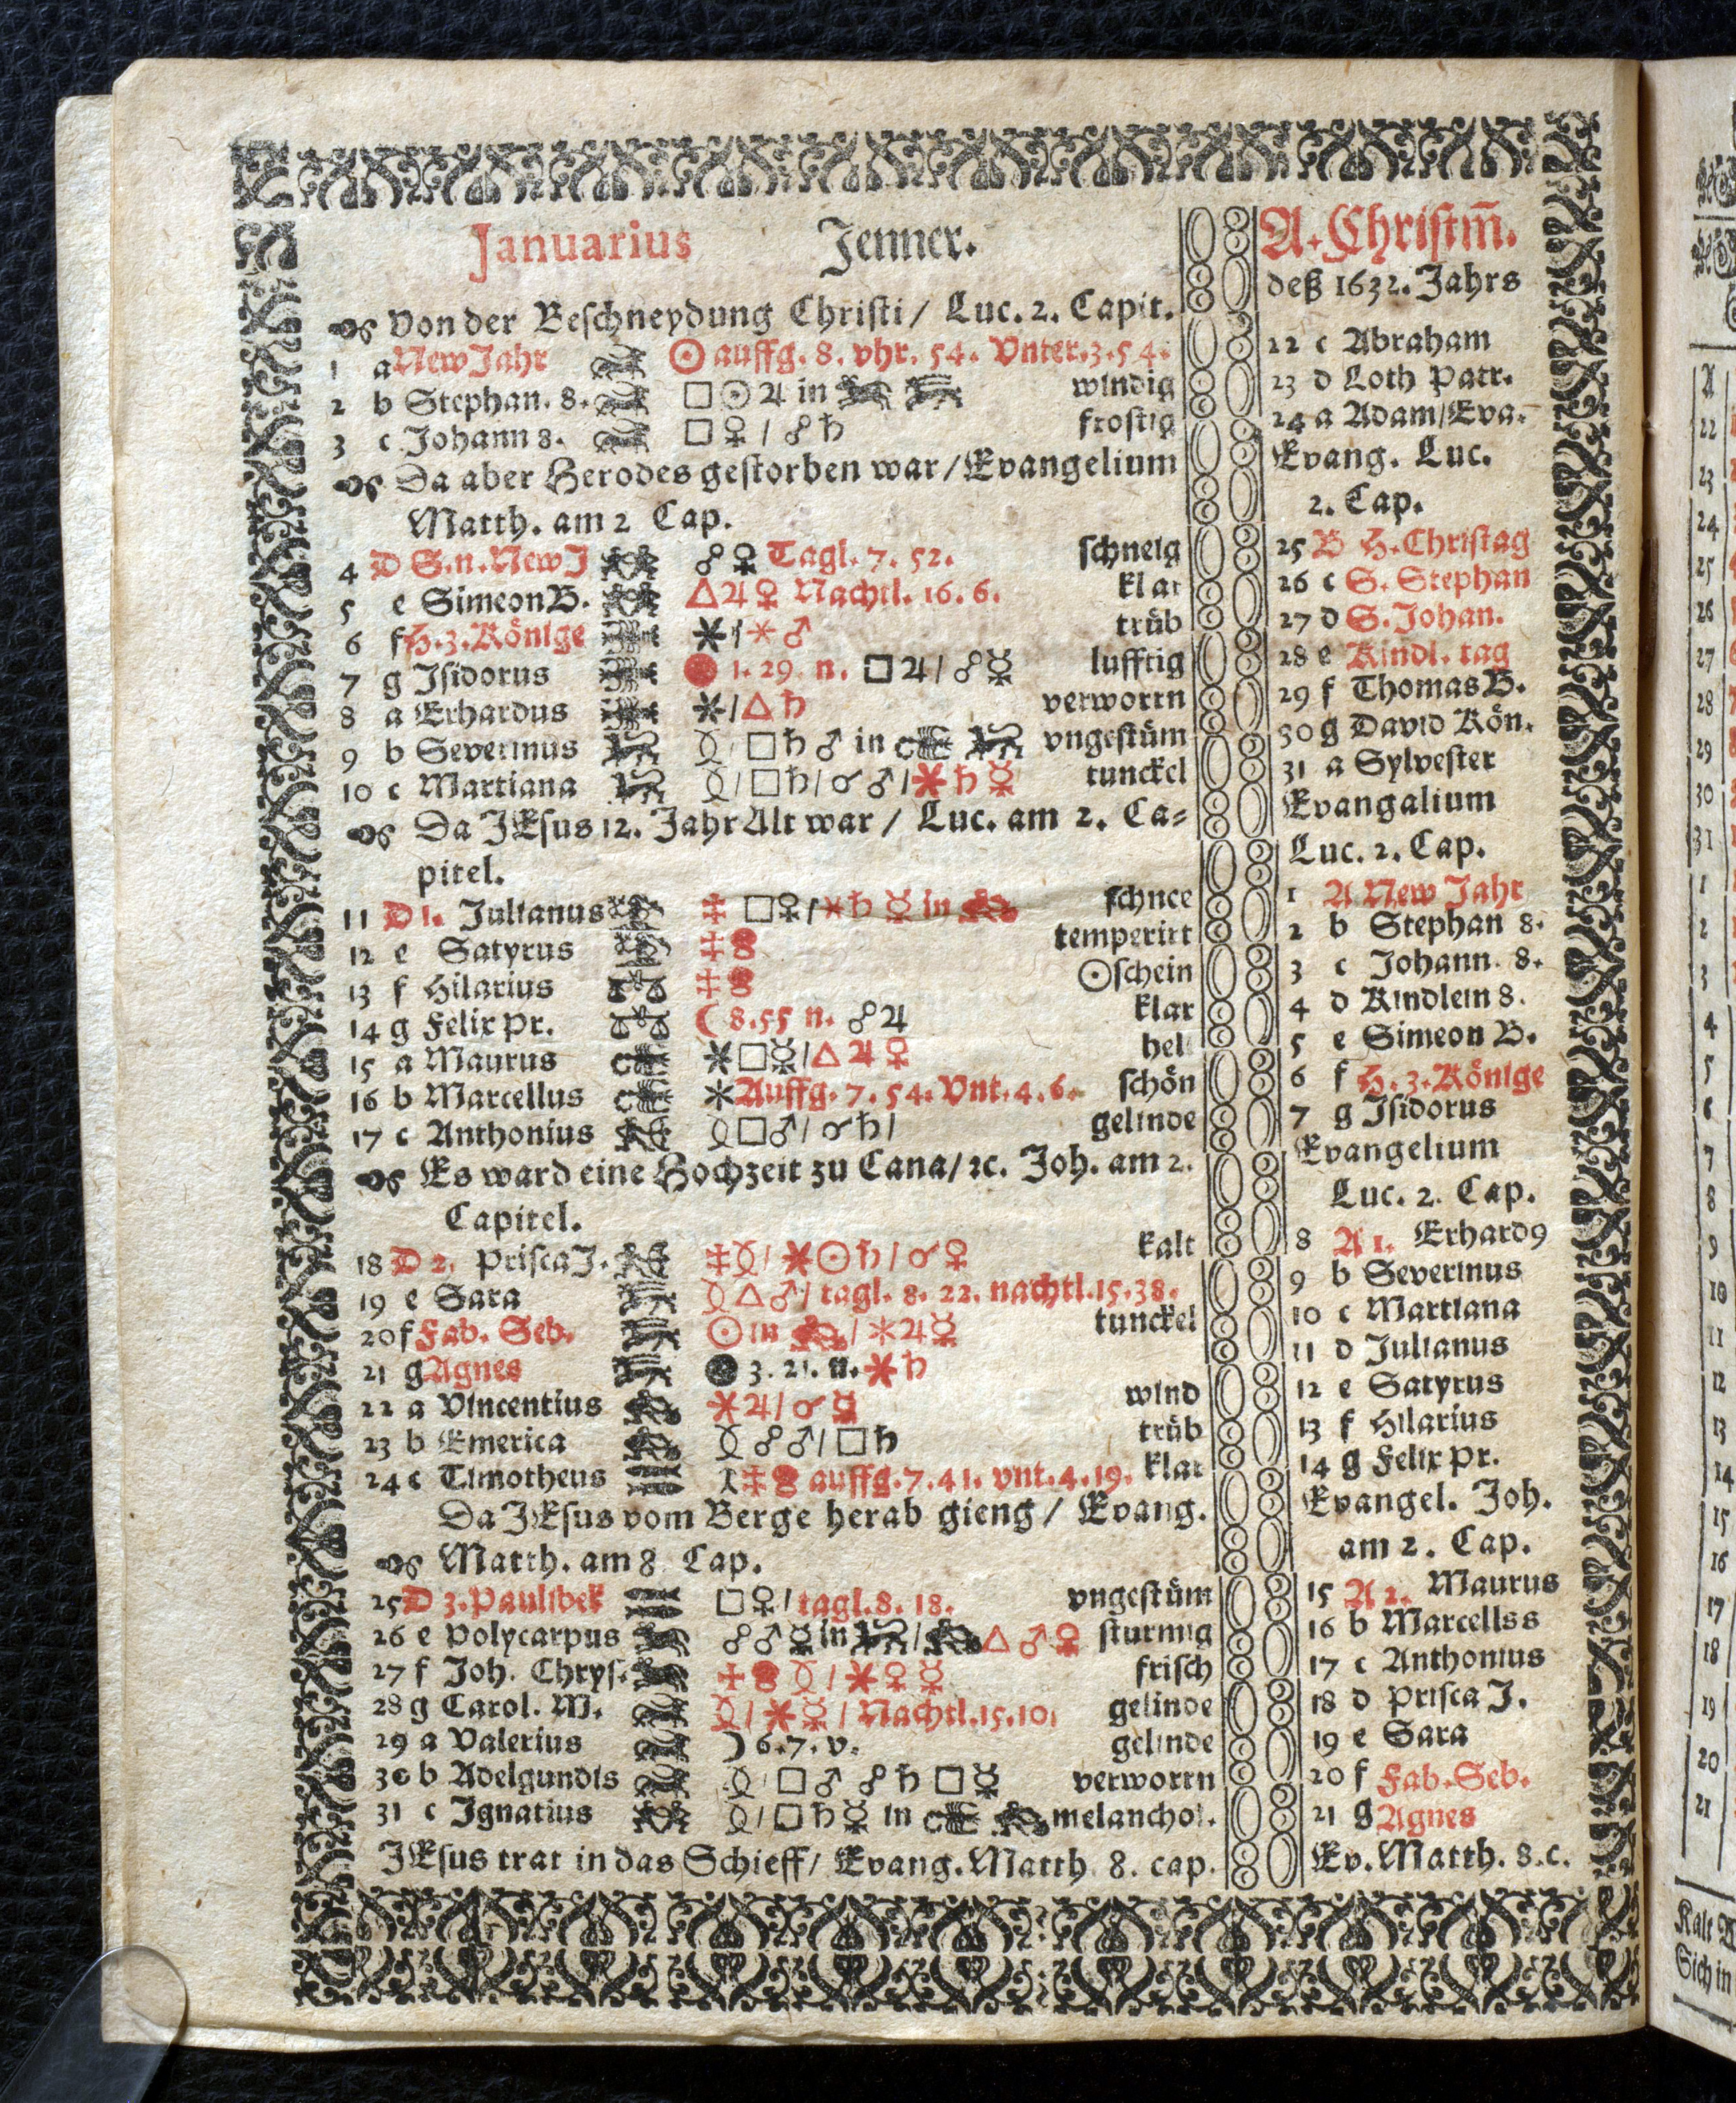 Januarius Jenner.
Von der Beschneydung Christi / Luc. 2. Capit.
1 a New Jahr ☉ auffg. 8. vhr. 54. Vnter. 3. 54.
2 b Stephan. 8. □ ☉ ♃ in windig
3 c Johann 8. □ ♀ / ☍ ♄ frostig
Da aber Herodes gestorben war / Evangelium
Matth. am 2 Cap.
4 D S. n. New J ☍ ♀ Tagl. 7. 52. schneig
5 e Simeon B. △ ♃ ♀ Nachtl. 16. 6. klar
6 f H. 3. Könige ⚹ / ⚹ ♂ trüb
7 g Isidorus 1. 29. n. □ ♃ / ☍ ☿ lufftig
8 a Erhardus ⚹ / △ ♄ verworrn
9 b Severinus □ ♄ ♂ in vngestüm
10 c Martiana / □ ♄ / ☌ ♂ / ⚹ ♄ ☿ tunckel
Da JEsus 12. Jahr Alt war / Luc. am 2. Ca-
pitel.
11 D 1. Julianus □ ♀ / ⚹ ♄ ☿ in schnee
12 e Satyrus temperirt
13 f Hilarius ☉schein
14 g Felix Pr. ☾ 8. 55 n. ☍ ♃ klar
15 a Maurus ⚹ □ ☿ / △ ♃ ♀ hel
16 b Marcellus ⚹ Auffg. 7. 54. Vnt. 4. 6. schön
17 c Anthonius □ ♂ / ☌ ♄ / gelinde
Es ward eine Hochzeit zu Cana / ꝛc. Joh. am 2.
Capitel.
18 D 2. Prisca J. / ⚹ ☉ ♄ / ☌ ♀ kalt
19 e Sara △ ♂ / tagl. 8. 22. nachtl. 15. 38.
20 f Fab. Seb. ☉ in / ⚹ ♃ ☿ tunckel
21 g Agnes 3. 21. n. ⚹ ♄
22 a Vincentius ⚹ ♃ / ☌ ☿ wind
23 b Emerica ☍ ♂ / □ ♄ trüb
24 c Timotheus auffg. 7. 41. vnt. 4. 19. klar
Da JEsus vom Berge herab gieng / Evang.
Matth. am 8 Cap.
25 D 3. Paulibek □ ♀ / tagl. 8. 18. vngestüm
26 e Polycarpus ☍ ♂ ☿ in / △ ♂ ♀ sturmig
27 f Joh. Chrys. / ⚹ ♀ ☿ frisch
28 g Carol. M. / ⚹ ☿ / Nachtl. 15. 10. gelinde
29 a Valerius ☽ 6. 7. v. gelinde
30 b Adelgundis □ ♂ ☍ ♄ □ ☿ verworrn
31 c Ignatius / □ ♄ ☿ in melanchol.
JEsus trat in das Schieff / Evang. Matth 8. cap.
A. Christm̄.
deß 1632. Jahrs
22 c Abraham
23 d Loth Patr.
24 a Adam / Eva.
Evang. Luc.
2. Cap.
25 B H. Christag
26 c S. Stephan
27 d S. Johan.
28 e Kindl. tag
29 f Thomas B.
30 g David Kön.
31 a Sylvester
Evangalium
Luc. 2. Cap.
1 A New Jahr
2 b Stephan 8.
3 c Johann. 8.
4 d Kindlein 8.
5 e Simeon B.
6 f H. 3. Könige
7 g Isidorus
Evangelium
Luc. 2. Cap.
8 A 1. Erhard9
9 b Severinus
10 c Martiana
11 d Julianus
12 e Satyrus
13 f Hilarius
14 g Felix Pr.
Evangel. Joh.
am 2. Cap.
15 A 2. Maurus
16 b Marcellss
17 c Anthonius
18 d Prisca J.
19 e Sara
20 f Fab. Seb.
21 g Agnes
Ev. Matth. 8. c.
22
23
24
25
26
27
28
29
30
31
1
2
3
4
5
6
7
8
9
10
11
12
13
14
15
16
17
18
19
20
21
Kalt
Sich in